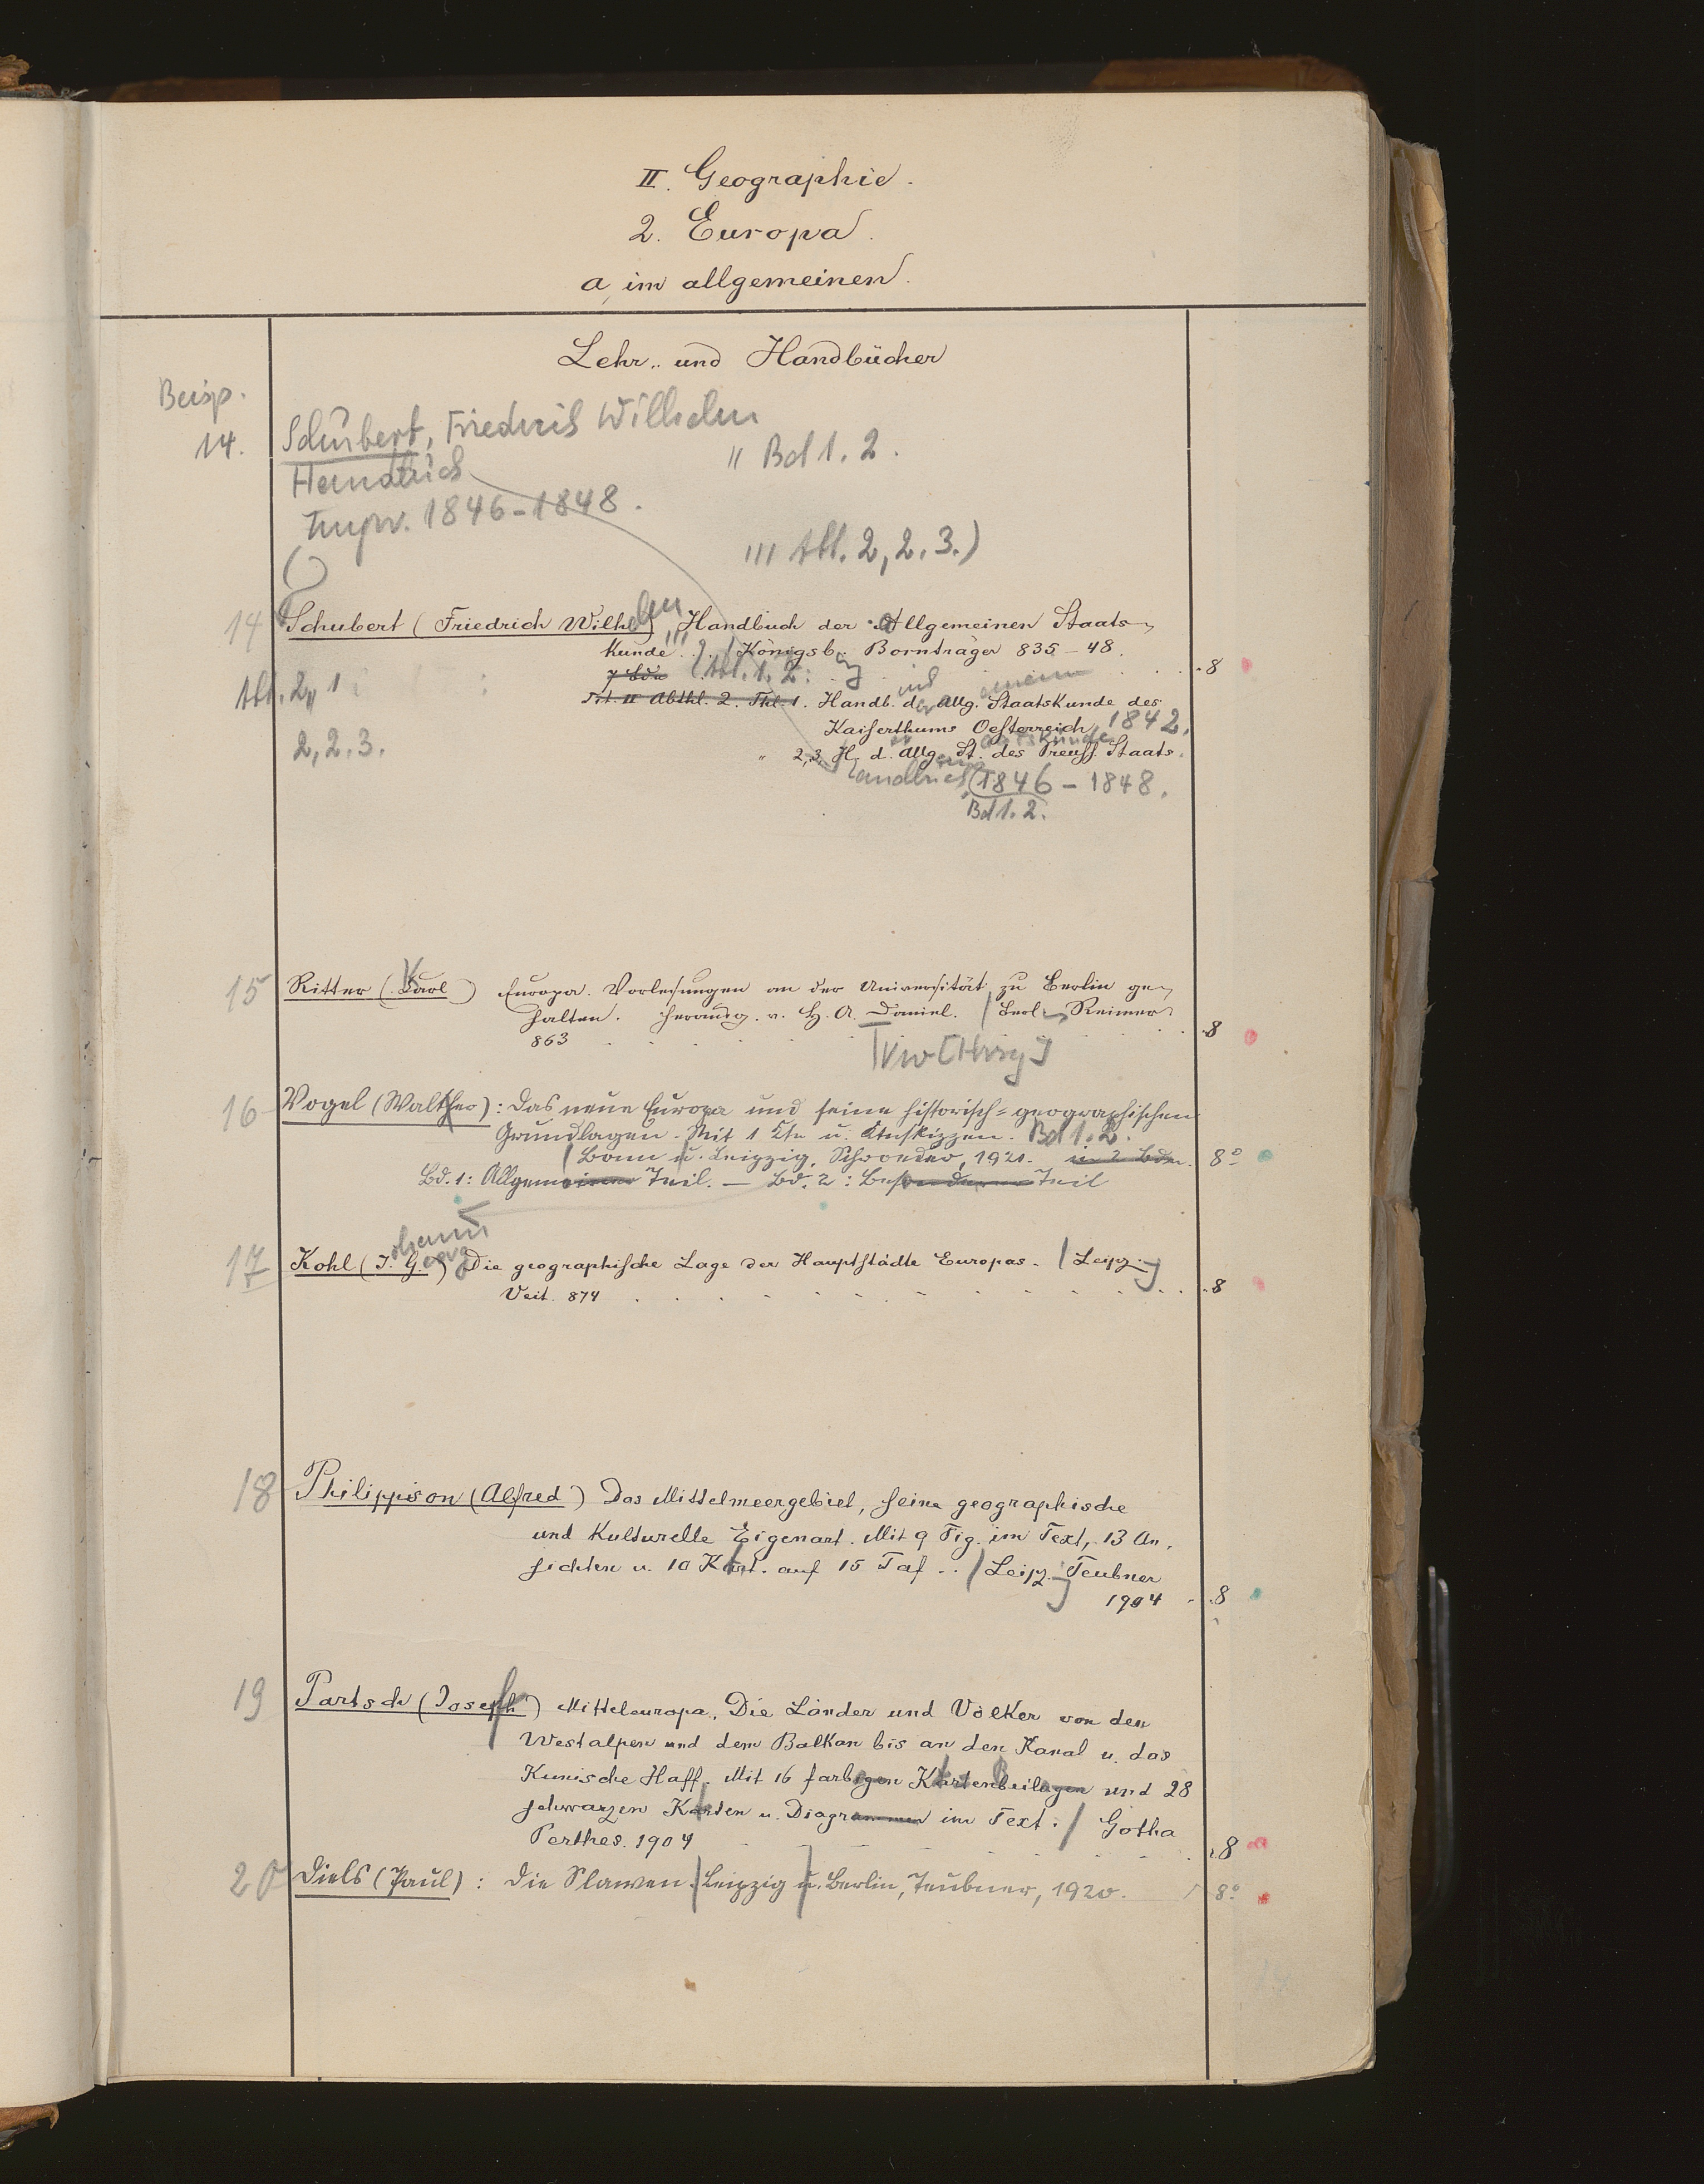 II. Geographie.
2. Europa.
a, im allgemeinen.
Lehr- und Handbücher
Beisp.
14. Schubert, Friedrich Wilhelm
" Bd 1. 2.
1846-1848.
''' Abt. 2, 2. 3.)
14 Schubert (Friedrich Wilhelm) Handbuch der Allgemeinen Staats-
kunde. Königsb. Bornträger 835-48. 8
7 Bde (Abt. 1. 2.
Abt. 2,, 1
Tit. II Abthl. 2. Thl. 1. Handb. d. Allg. Staatskunde des
Kaiserthums Oesterreich 1842.
2, 2. 3.
" 2,3. H. d. Allg. St. des Preuss. Staats.
1846-1848.
Bd 1. 2.
15 Ritter (Karl) Europa. Vorlesungen an der Universität zu Berlin ge-
halten. Herausg. v. H. A. Daniel. / Berl. Reimer
863 8
[Hrsg]
16 Vogel (Walther): Das neue Europa und seine historisch-geographischen
Grundlagen. Mit 1 Kte u. Ktnskizzen. Bd 1. 2.
/ Bonn u. Leipzig, Schroeder, 1921. in 2 Bdn. 8°
Bd. 1: Allgemeiner Teil. — Bd. 2: Besonderer Teil
17 Kohl (J. G.) Die geographische Lage der Hauptstädte Europas. / Leipzig
Veit. 874 8
18 Philippson (Alfred) Das Mittelmeergebiet, seine geographische
und Kulturelle Eigenart. Mit 9 Fig. im Text, 13 An-
sichten u. 10 Kart. auf 15 Taf.. / Leipzig Teubner
1904 8
19 Partsch (Joseph) Mitteleuropa. Die Länder und Völker von den
Westalpen und dem Balkan bis an den Kanal u. das
Kurische Haff. Mit 16 farbigen Kartenbeilagen und 28
schwarzen Karten u. Diagrammen im Text. / Gotha
Perthes. 1904 8
20 Diels (Paul): Die Slawen. / Leipzig u. Berlin, Teubner, 1920. 8°